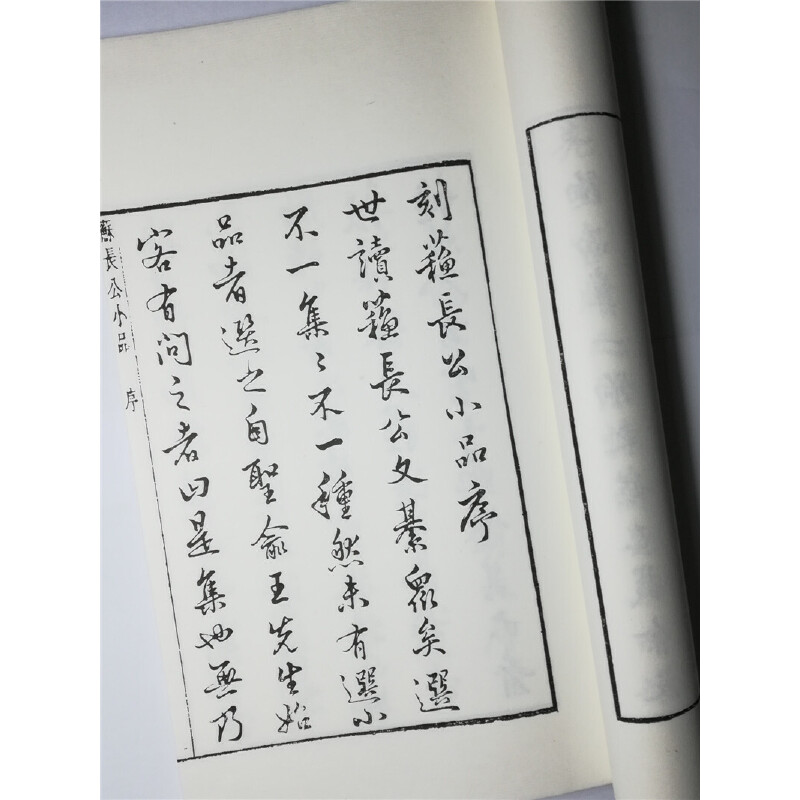 刻蘓長公小品序
世讀蘓長公文綦衆矣選
不一集〻不一種然未有選小
品者選之自聖俞王先生始
客有問之者曰是集也無乃
蘇長公小品 序